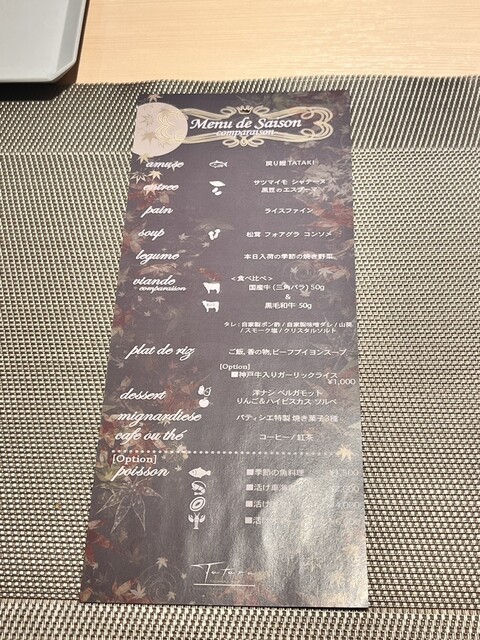 Menu de Saison
comparaison
amuse
戻り鰹 TATAKI
entree
サツマイモ シャテーヌ
黒豆のエスプーマ
pain
ライスファイン
soup
松茸 フォアグラ コンソメ
legume
本日入荷の季節の焼き野菜
viande
comparaison
<食べ比べ>
国産牛 (三角バラ) 50g
&
黒毛和牛 50g
タレ : 自家製ポン酢 / 自家製味噌ダレ / 山葵
/ スモーク塩 / クリスタルソルト
plat de riz
ご飯, 香の物, ビーフブイヨンスープ
[Option]
■神戸牛入りガーリックライス
¥1,000
dessert
洋ナシ ベルガモット
りんご＆ハイビスカス ソルベ
mignardiese
パティシエ特製 焼き菓子3種
cafe ou thé
コーヒー / 紅茶
[Option]
poisson
■季節の魚料理
■活け車海
■活け
■活